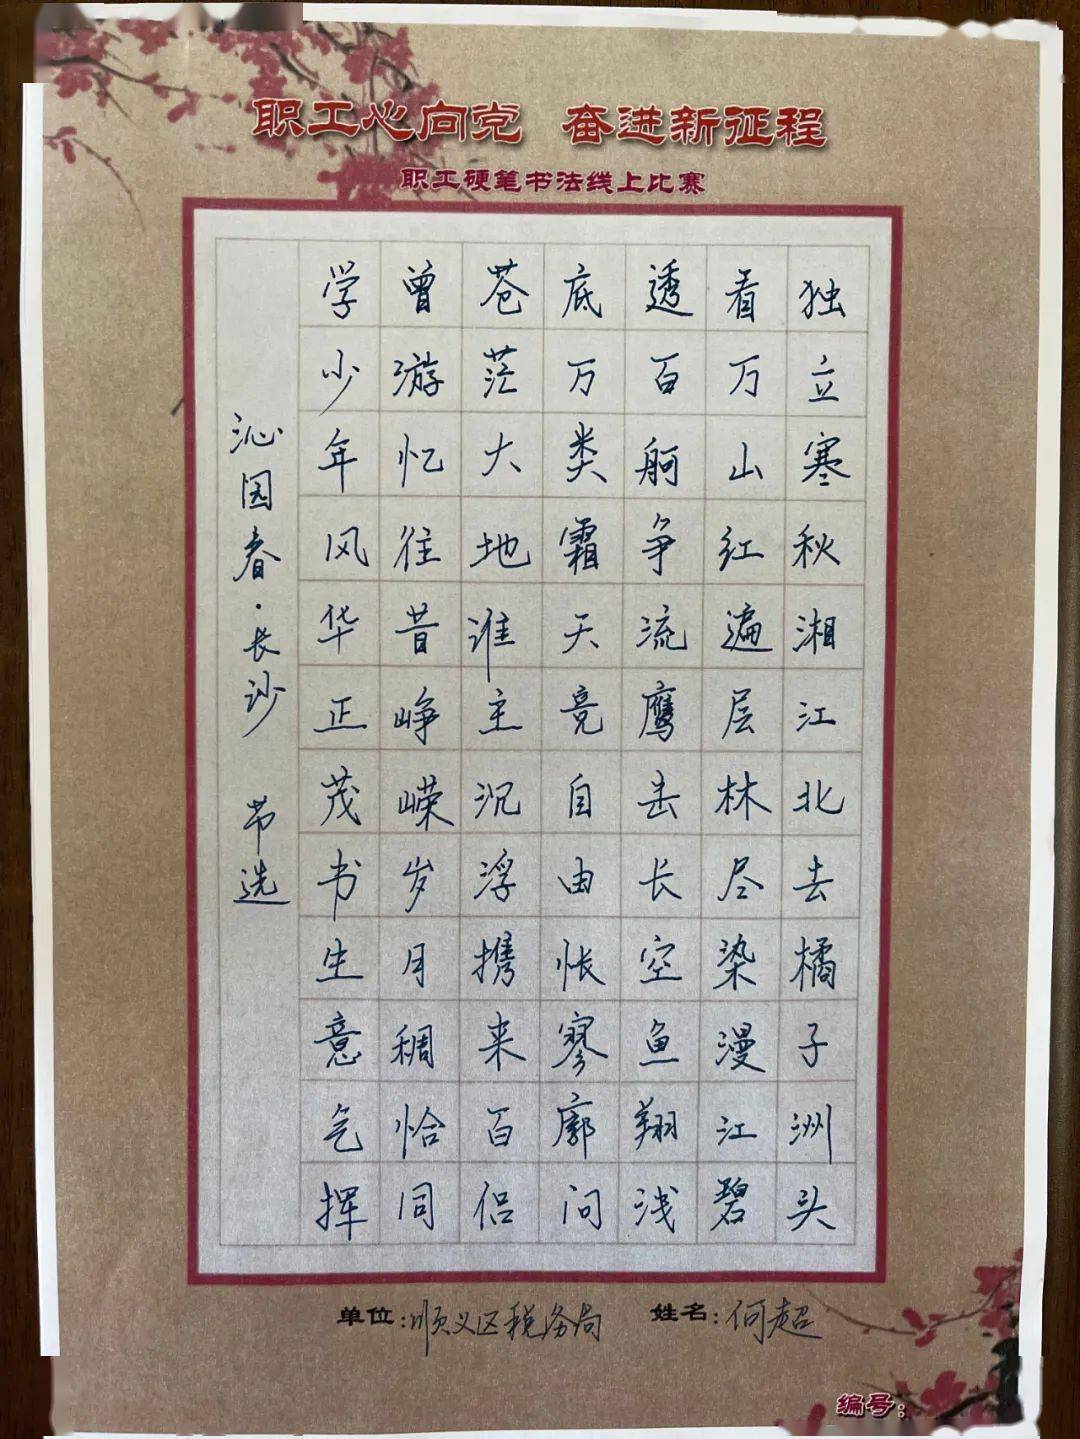 职工心向党 奋进新征程
职工硬笔书法线上比赛
独立寒秋湘江北去橘子洲头
看万山红遍层林尽染漫江碧
透百舸争流鹰击长空鱼翔浅
底万类霜天竞自由怅寥廓问
苍茫大地谁主沉浮携来百侣
曾游忆往昔峥嵘岁月稠恰同
学少年风华正茂书生意气挥
沁园春·长沙 节选
单位:顺义区税务局 姓名:何超
编号: